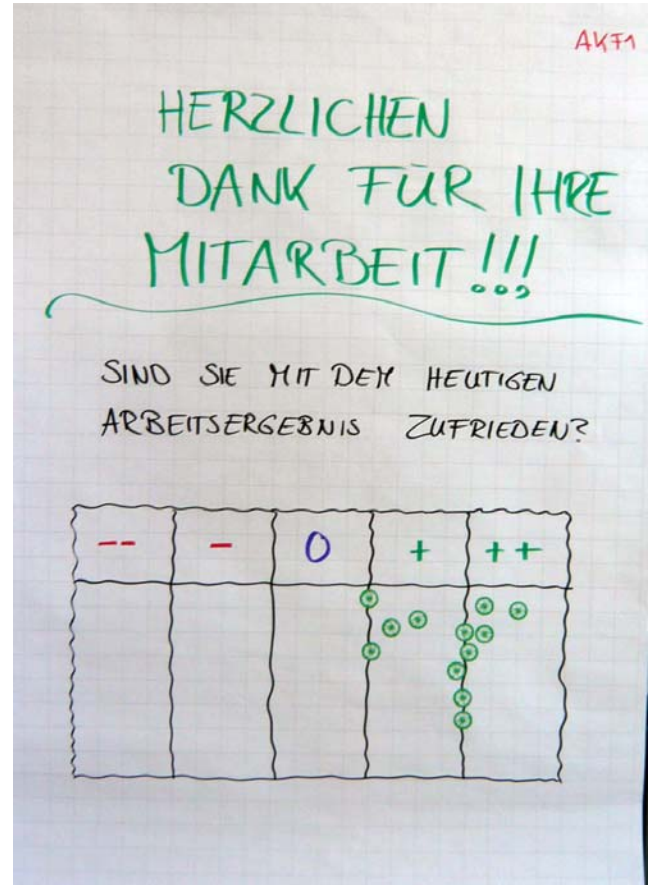 AKF1
HERZLICHEN
DANK FÜR IHRE
MITARBEIT!!!
SIND SIE MIT DEM HEUTIGEN
ARBEITSERGEBNIS ZUFRIEDEN?
-- - 0 + ++